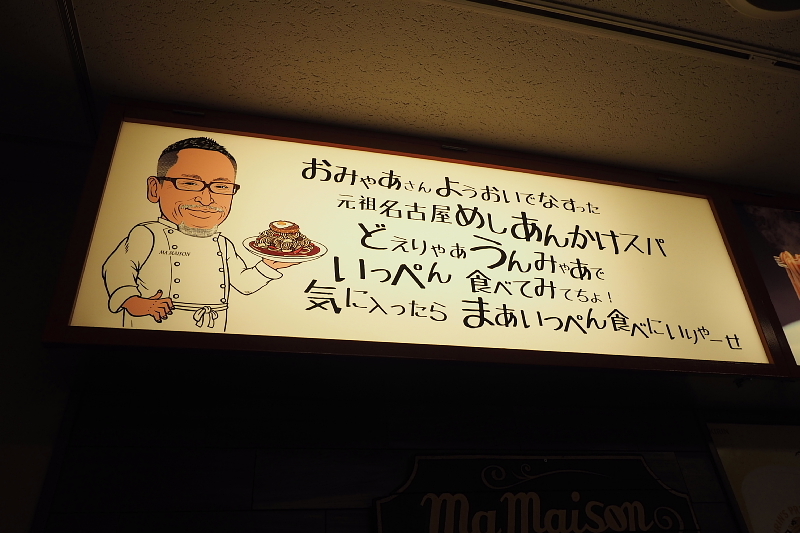 おみゃあさん ようおいでなすった
元祖名古屋めしあんかけスパ
どえりゃあうんみゃあで
いっぺん 食べてみてちょ!
気に入ったら まあいっぺん食べにいりゃーせ
MA MAISON
Ma Maison